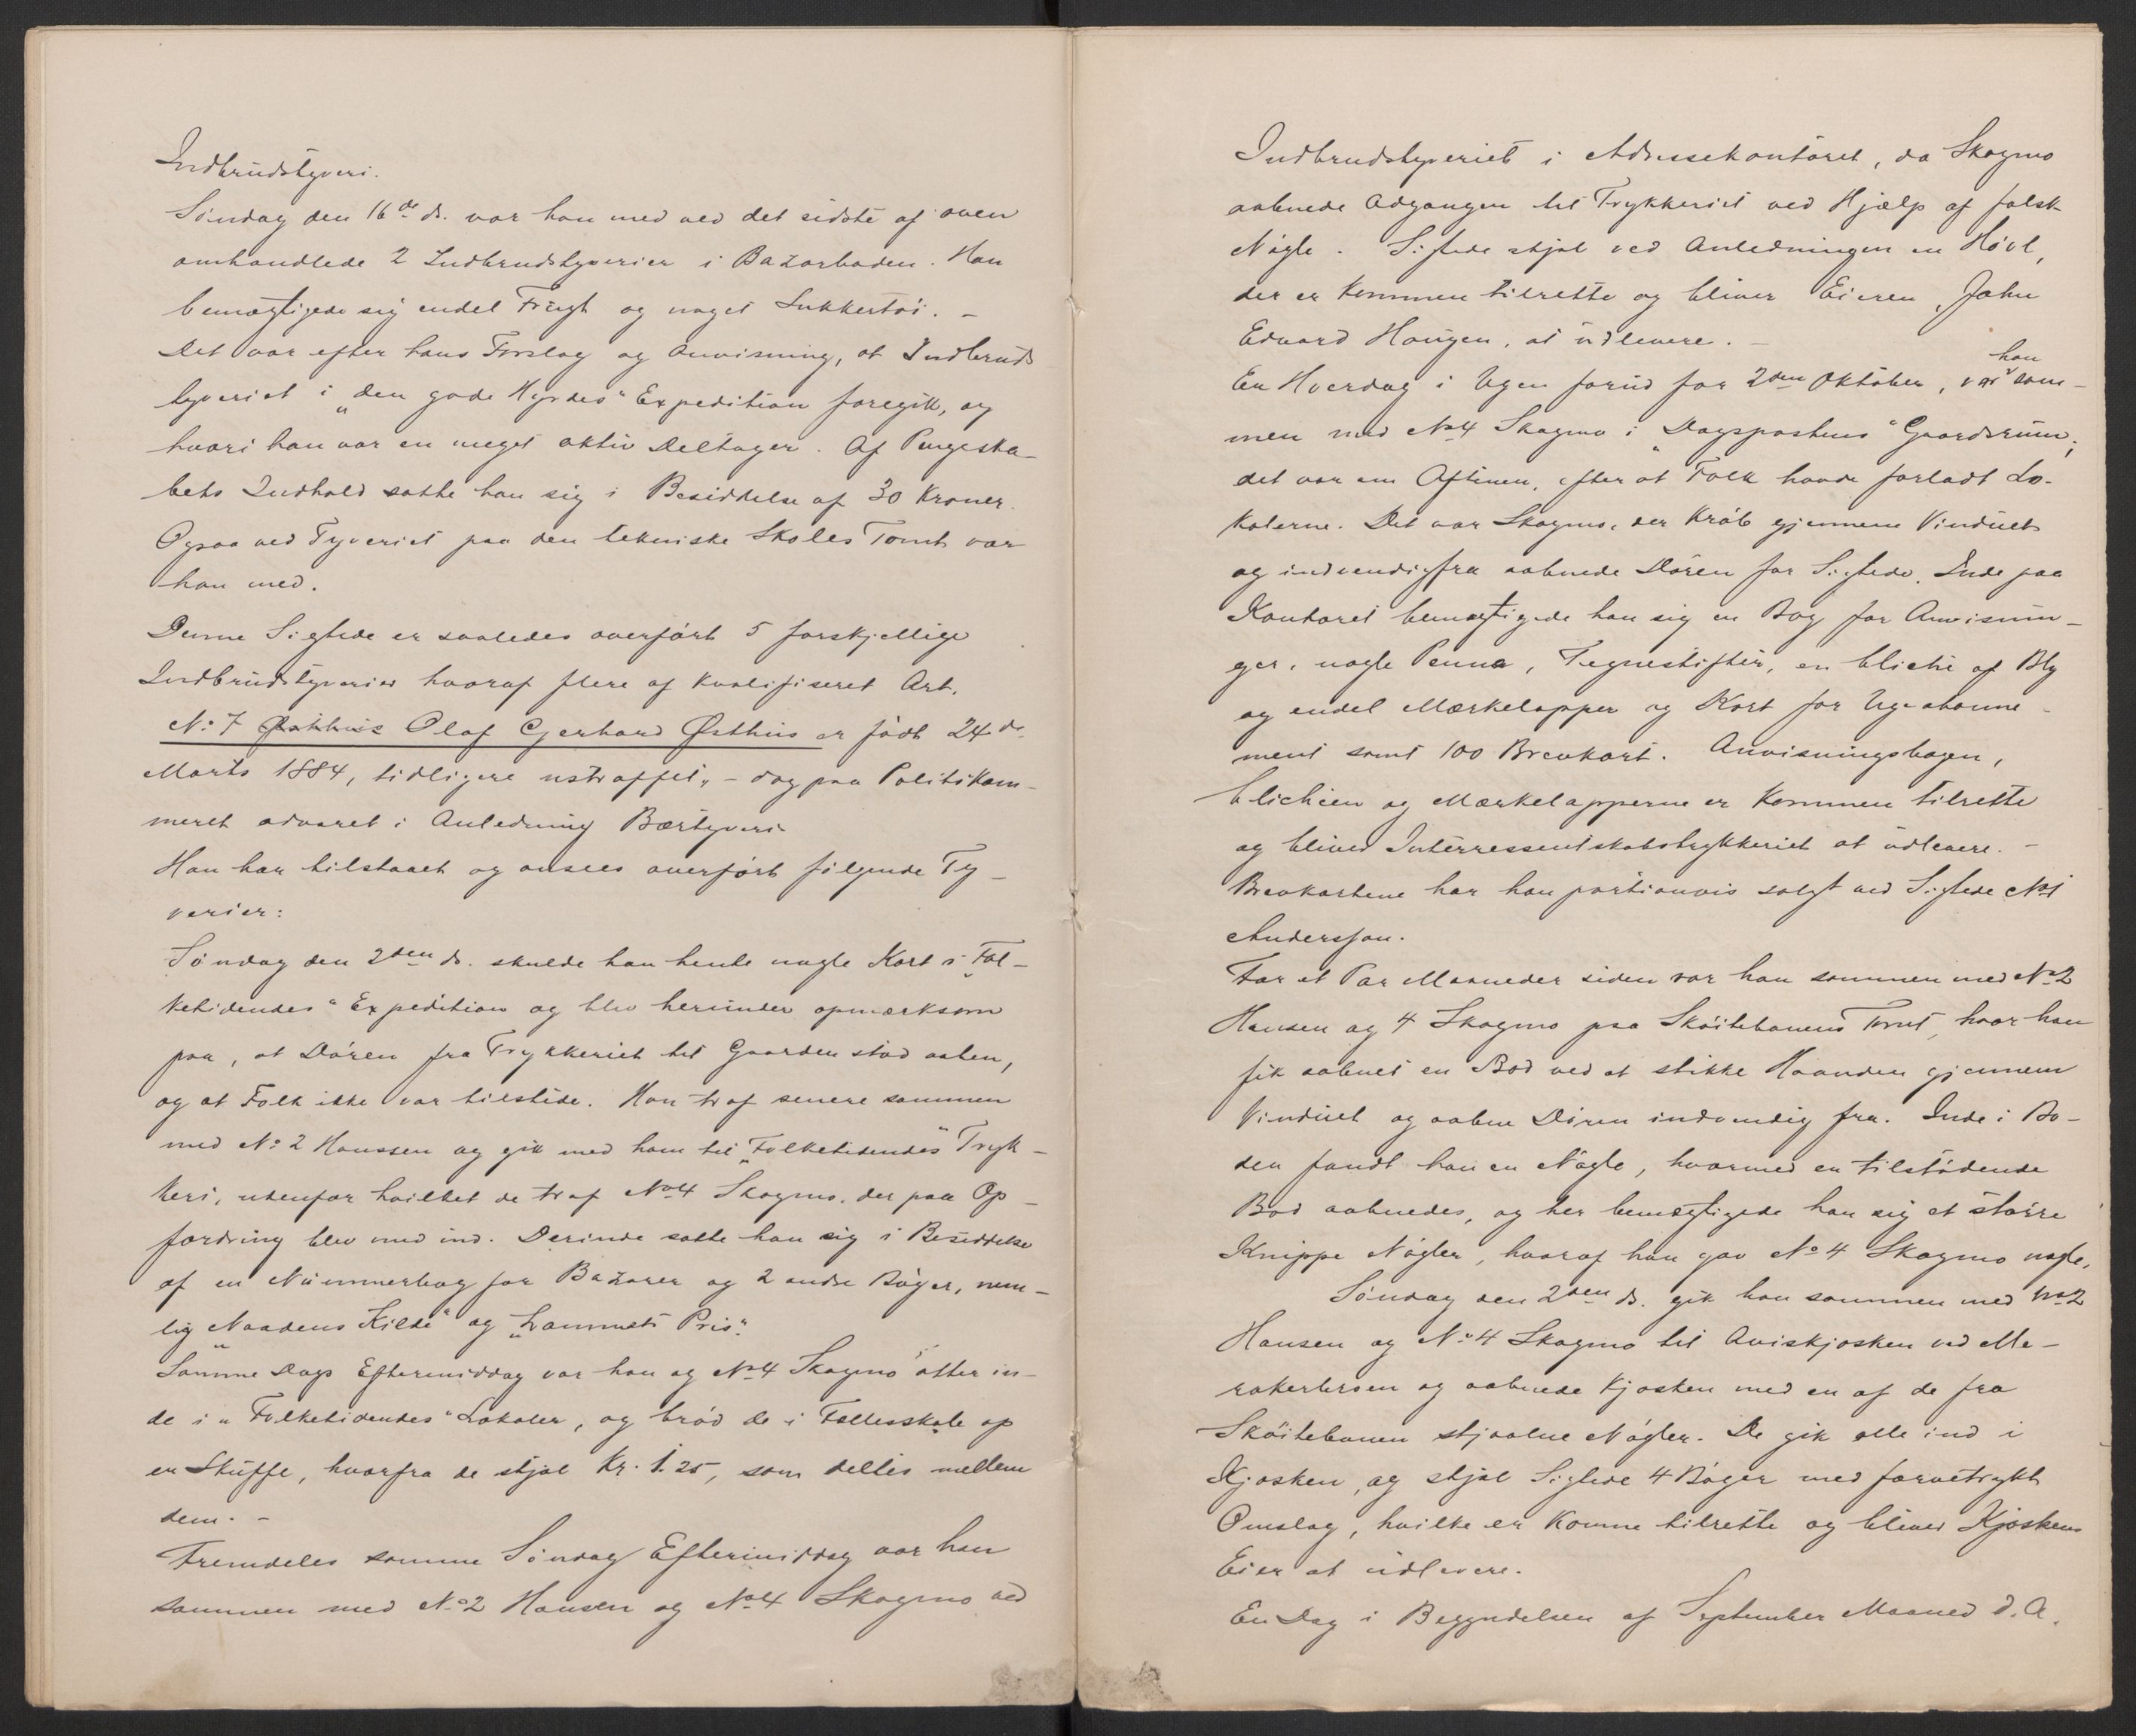 Indbrudstyveri.
Søndag den 16de ds. var han med ved det sidste af oven
omhandlede 2 Indbrudstyverier i Bazarboden. Han
bemægtigede sig endel Frugt og noget Sukkertøi. –
Det var efter hans Forslag og Anvisning, at Indbruds
tyveriet i „den gode Hyrdes" Expedition foregik, og
hvori han var en meget aktiv Deltager. Af Pengeska-
bets Indhold satte han sig i Besiddelse af 30 Kroner.
Ogsaa ved Tyveriet paa den tekniske Skoles Tomt var
han med.
Denne Sigtede er saaledes overført 5 forskjellige
Indbrudstyverier hvoraf flere af kvalifiseret Art.
No 7 Østhus Olaf Gerhard Østhus er født 24de
Marts 1884, tidligere ustraffet, – dog paa Politikam-
meret advaret i Anledning Bærtyveri.
Han har tilstaaet og ansees overført følgende Ty-
verier:
Søndag den 2den ds. skulde han hente nogle Kort i „Fol-
ketidendes" Expedition og blev herunder opmærksom
paa, at Døren fra Trykkeriet til Gaarden stod aaben,
og at Folk ikke var tilstede. Han traf senere sammen
med No 2 Hanssen og gik med ham til „Folketidendes" Tryk-
keri, udenfor hvilket de traf No 4 Skogmo, der paa Op-
fordring blev med ind. Derinde satte han sig i Besiddelse
af en Nummerbog for Bazarer og 2 andre Bøger, nem-
lig „Naadens Kilde" og „Lammets Pris".
Samme Dags Eftermiddag var han og No 4 Skogmo atter in-
de i „Folketidendes" Lokaler, og brød de i Fællesskab op
en Skuffe, hvorfra de stjal Kr. 1.25, som deltes mellem
dem. –
Fremdeles samme Søndag Eftermiddag var han
sammen med No 2 Hansen og No 4 Skogmo ved
Indbrudstyveriet i Adressekontoret, da Skogmo
aabnede Adgangen til Trykkeriet ved Hjælp af falsk
Nøgle. Sigtede stjal ved Anledningen en Høvl,
der er kommen tilrette og bliver Eieren, John
Edvard Haugen, at udlevere. –
En Hverdag i Ugen forud for 2den Oktober, var han sam-
men med No 4 Skogmo i „Dagspostens" Gaardsrum;
det var om Aftenen, efter at Folk havde forladt Lo-
kalerne. Det var Skogmo, der krøb gjennem Vinduet
og indvendigfra aabnede Døren for Sigtede. Inde paa
Kontoret bemægtigede han sig en Bog for Anvisnin-
ger, nogle Penna, Tegnestifter, en cliché af Bly
og endel Mærkelapper og Kort for Ugeabonne-
ment samt 100 Brevkort. Anvisningsbogen,
clichéen og Mærkelapperne er kommen tilrette
og bliver Interressentskabstrykkeriet at udlevere. –
Brevkortene har han portionvis solgt ved Sigtede No 1
Anderssen.
For et Par Maaneder siden var han sammen med No 2
Hansen og 4 Skogmo paa Skøitebanens Tomt, hvor han
fik aabnet en Bod ved at stikke Haanden gjennem
Vinduet og aabne Døren indvendig fra. Inde i Bo-
den fandt han en Nøgle, hvormed en tilstødende
Bod aabnedes, og her bemægtigede han sig et større
Knippe Nøgler, hvoraf han gav No 4 Skogmo nogle.
Søndag den 2den ds. gik han sammen med No 2
Hansen og No 4 Skogmo til Aviskjosken ved Me-
rakerbroen og aabnede Kjosken med en af de fra
Skøitebanen stjaalne Nøgler. De gik alle ind i
Kjosken, og stjal Sigtede 4 Bøger med farvetrykt
Omslag, hvilke er komne tilrette og bliver Kjoskens
Eier at udlevere.
En Dag i Begyndelsen af September Maaned d. A.